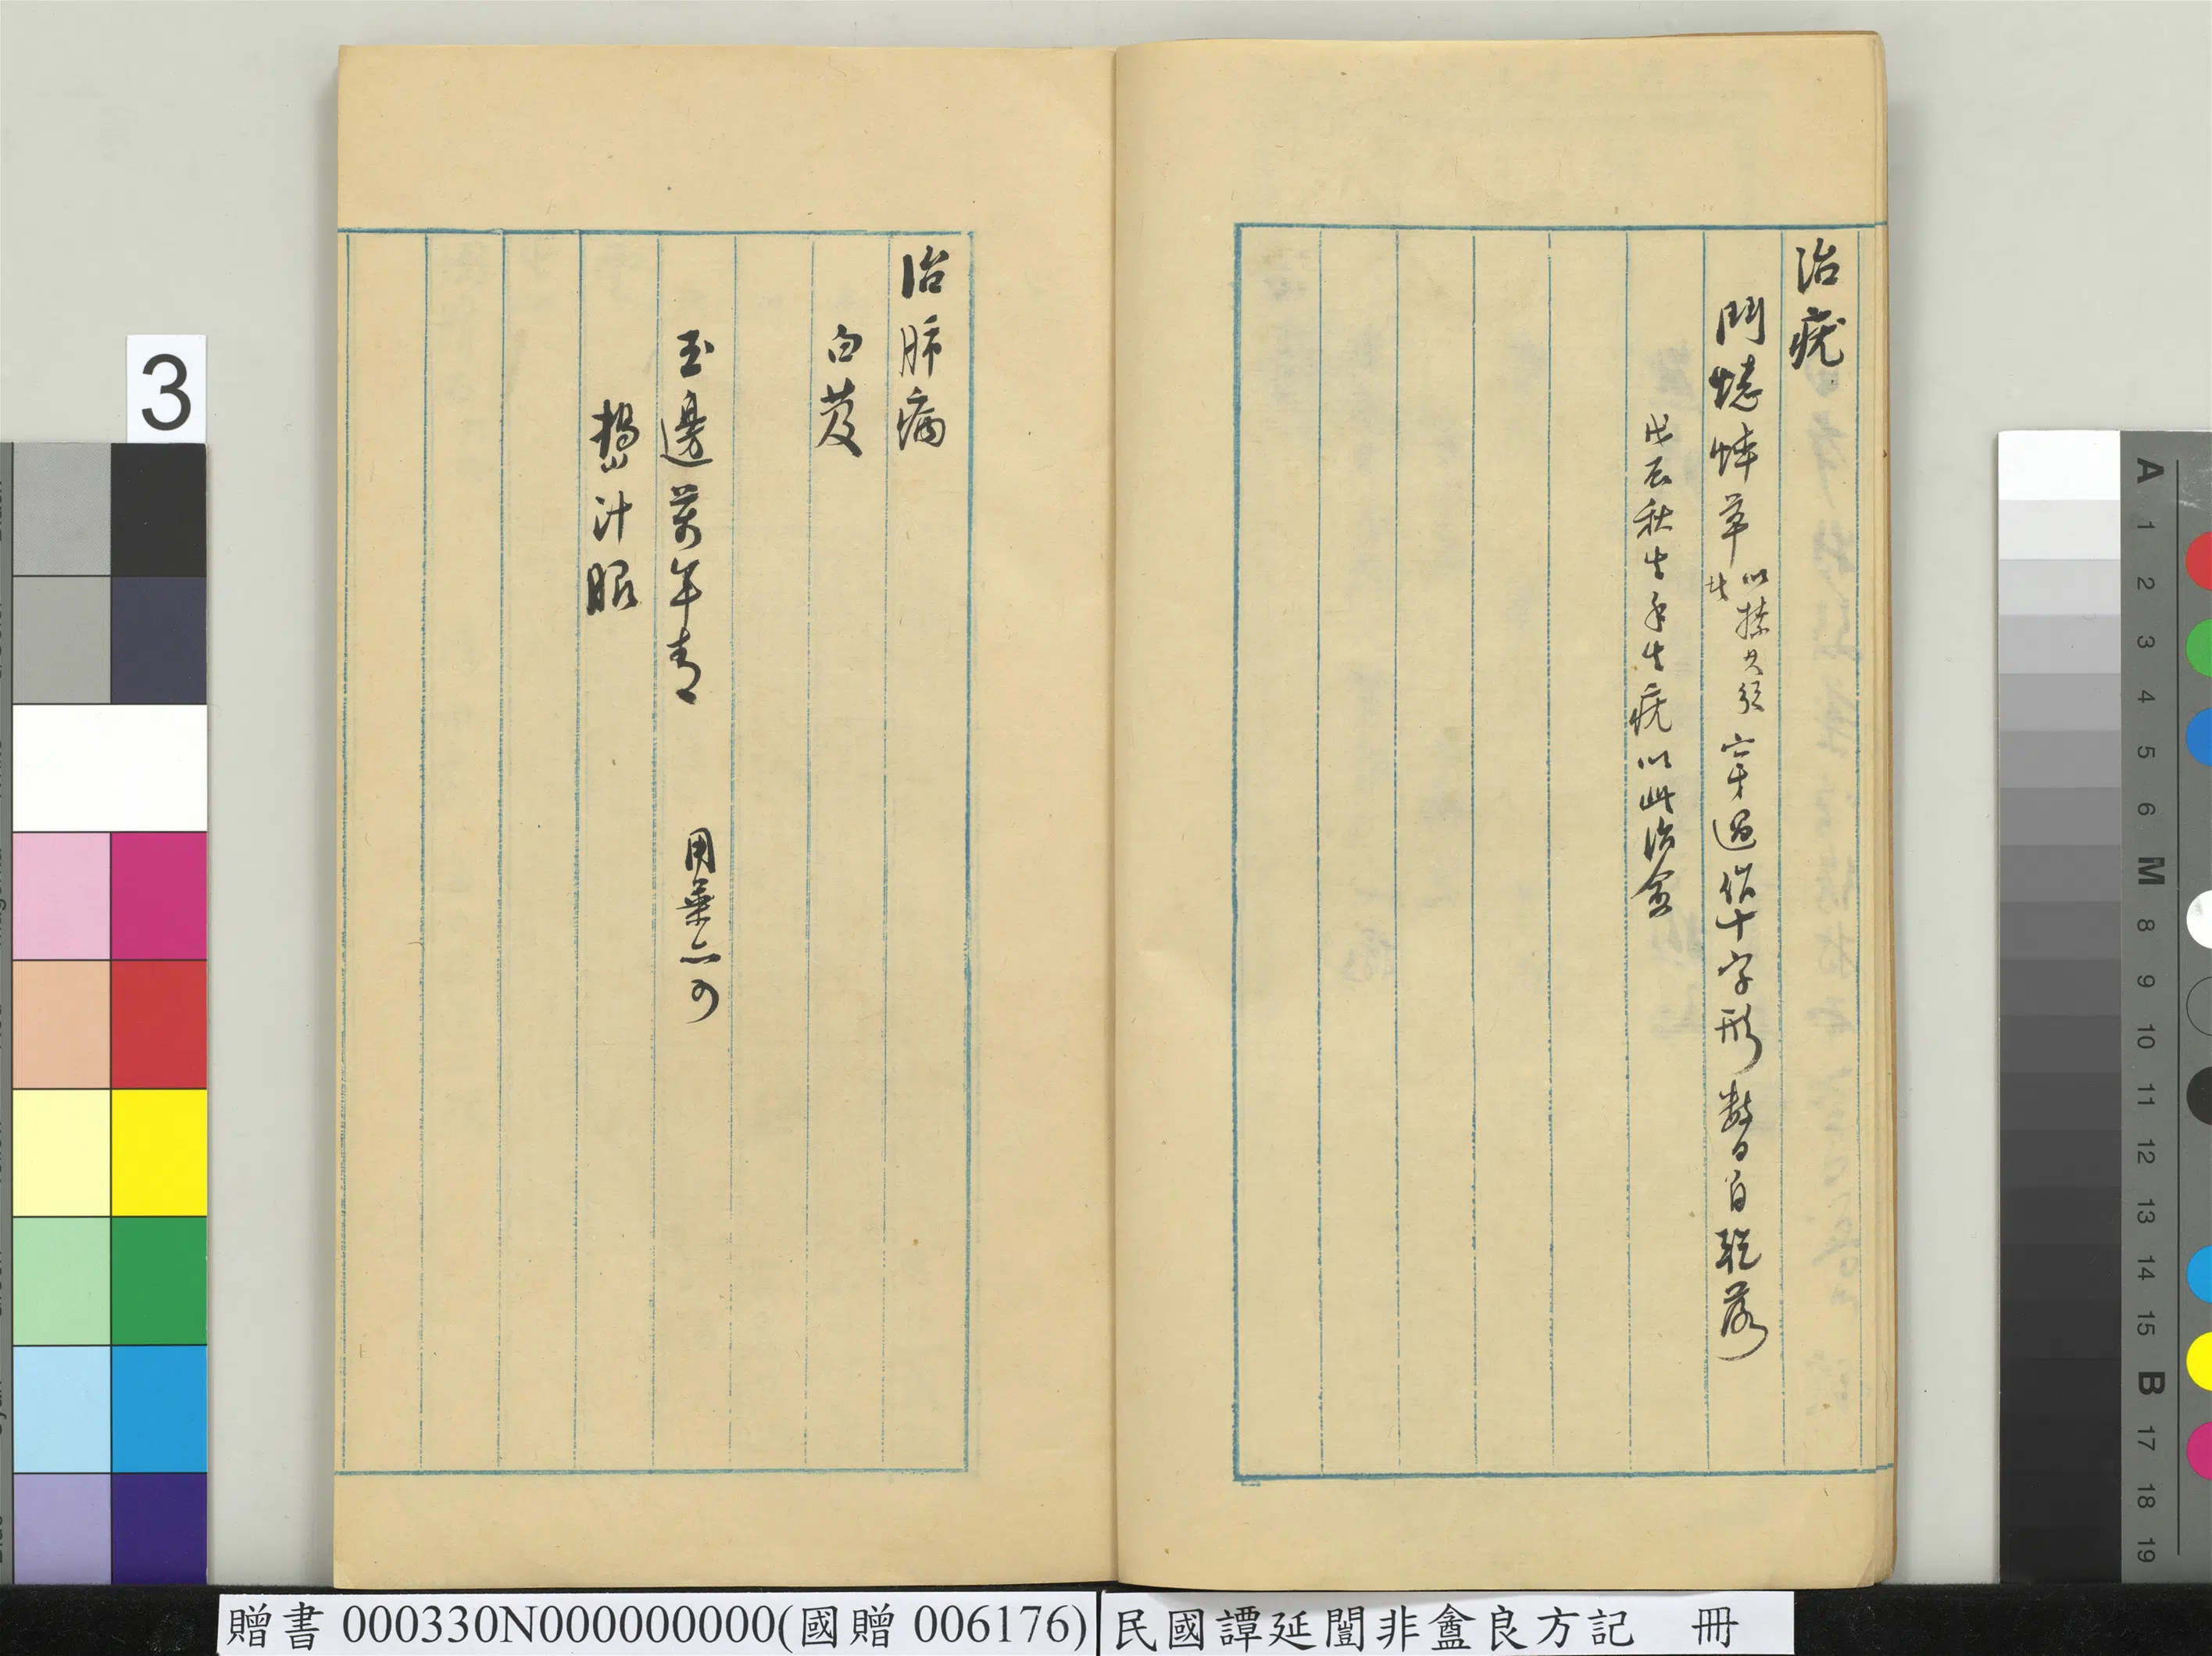 治疣
鬥蟋蟀草以搽其頭穿過作十字形數日自脫落
戊辰秋生手生疣以此治愈
治肺病
白芨
玉邊萬年青 用葉亦可
搗汁服
3
A 1 2 3 4 5 6 M 8 9 10 11 12 13 14 15 B 17 18 19
贈書 000330N000000000(國贈 006176)
民國譚延闓非盦良方記 冊